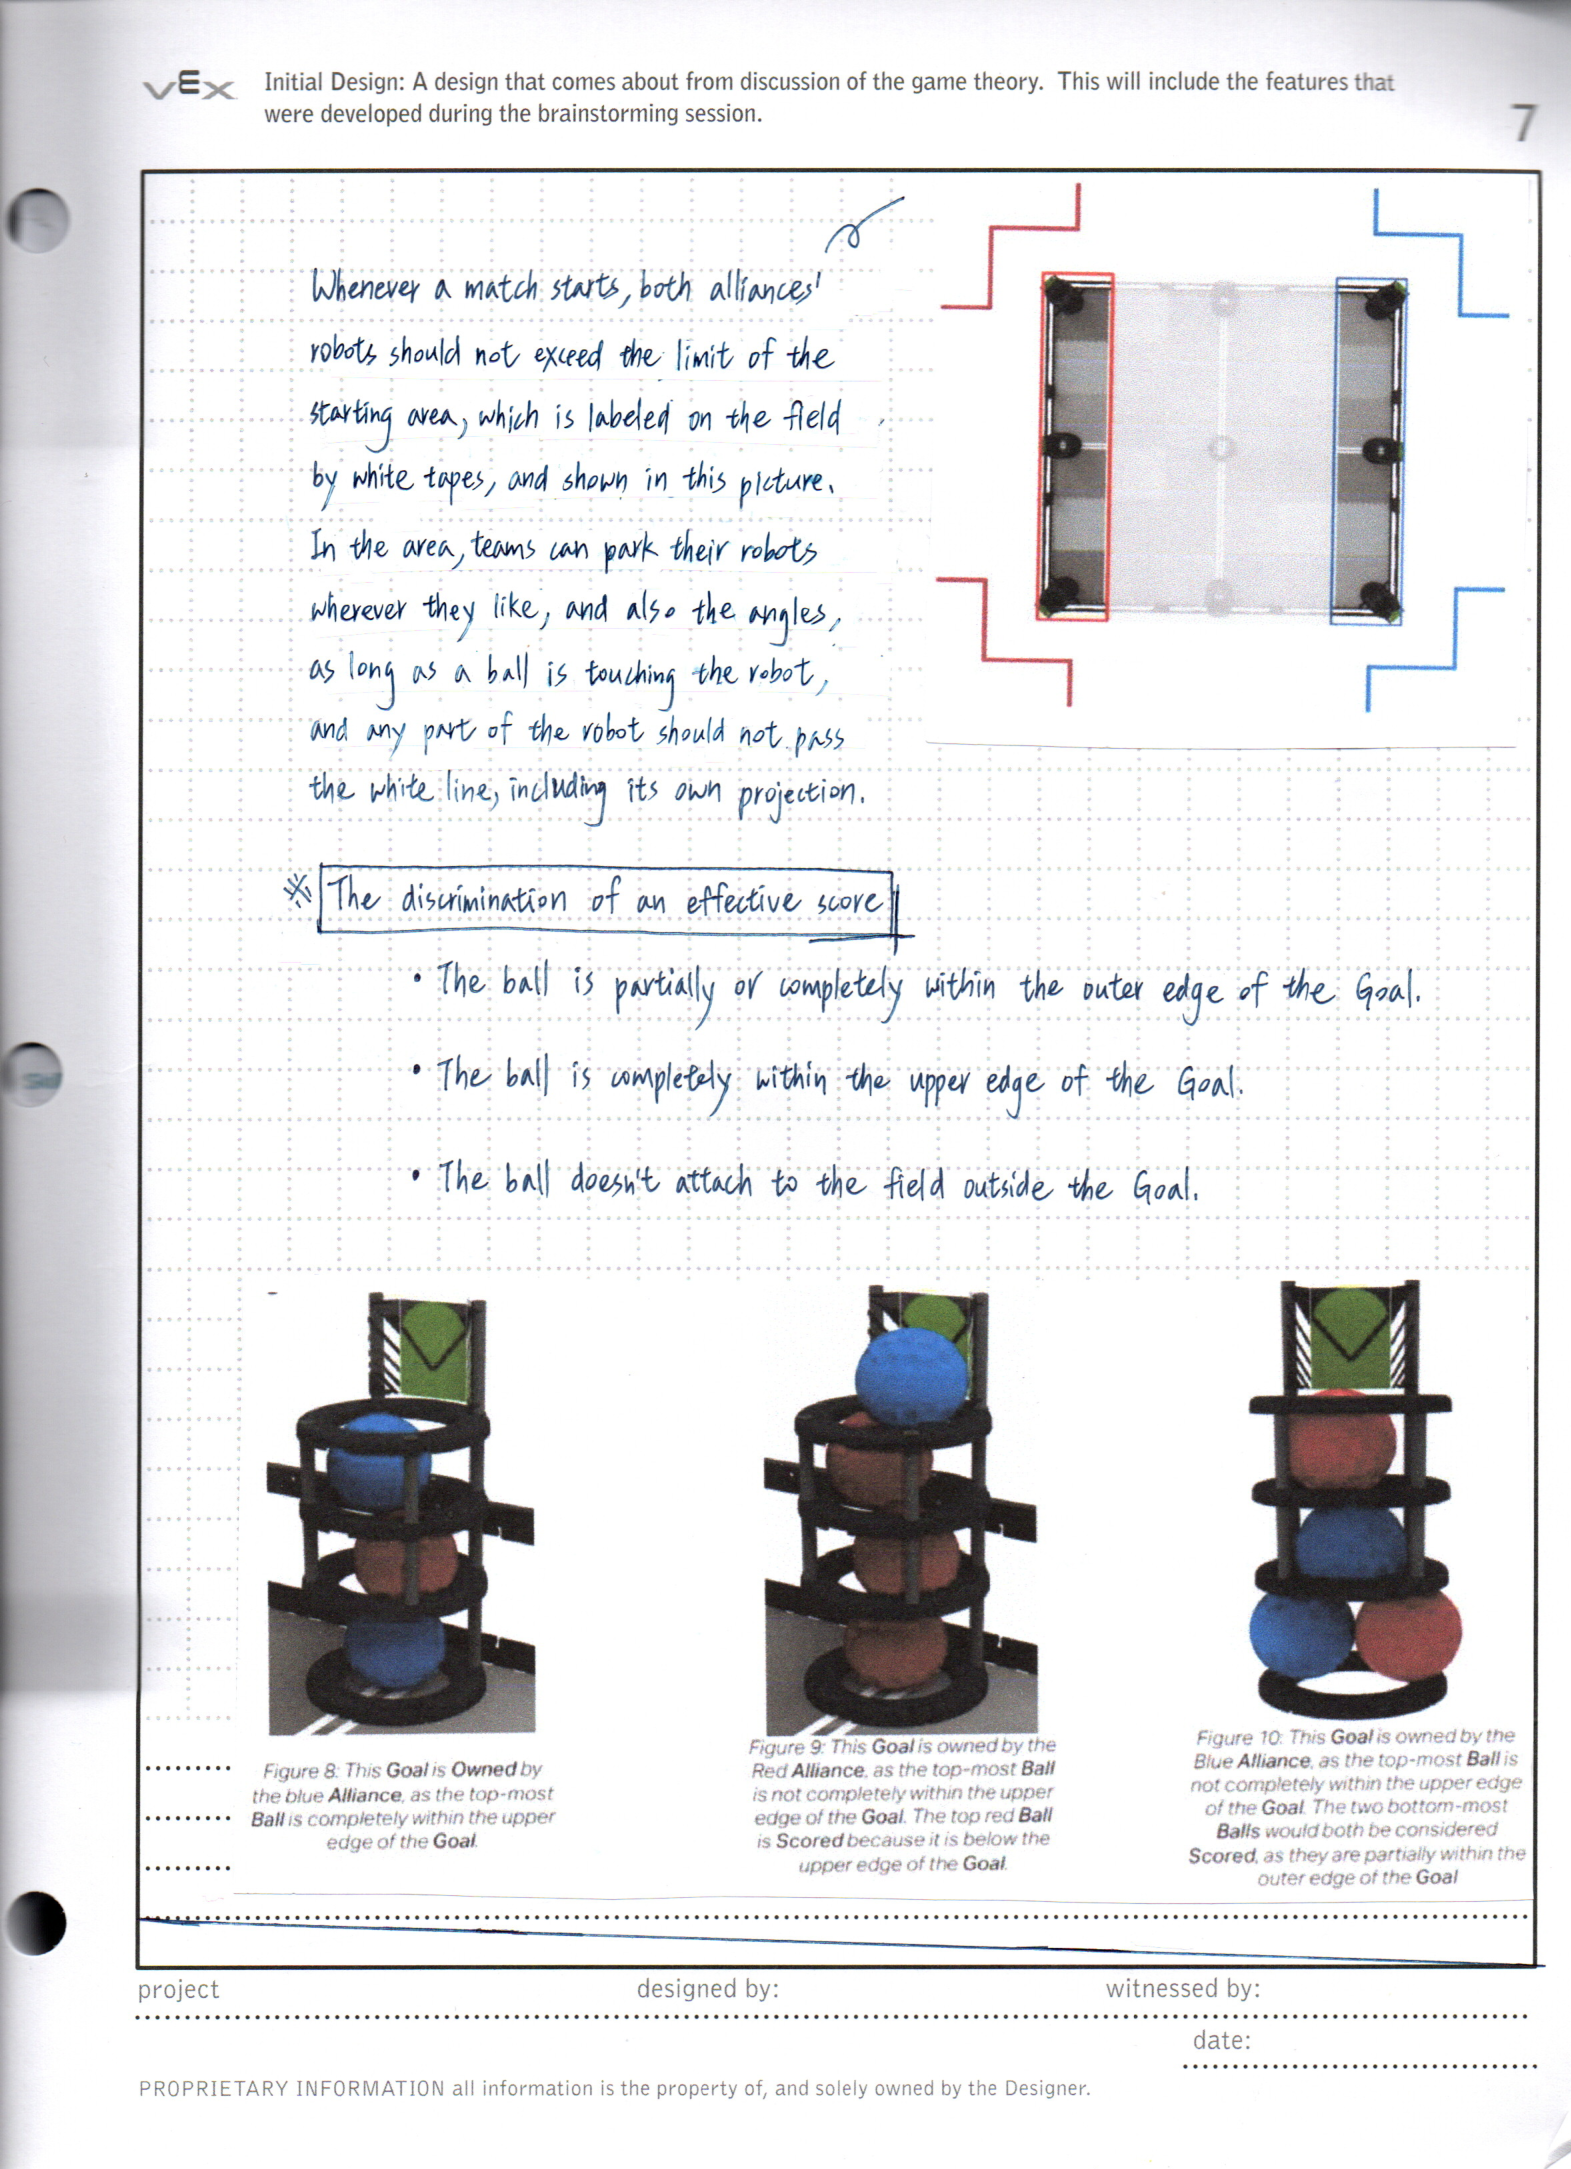 vEx
Initial Design: A design that comes about from discussion of the game theory. This will include the features that
were developed during the brainstorming session.
7
Whenever a match starts, both alliances'
robots should not exceed the limit of the
starting area, which is labeled on the field
by white tapes, and shown in this picture.
In the area, teams can park their robots
wherever they like, and also the angles,
as long as a ball is touching the robot,
and any part of the robot should not pass
the white line, including its own projection.
※ The discrimination of an effective score
• The ball is partially or completely within the outer edge of the Goal.
• The ball is completely within the upper edge of the Goal.
• The ball doesn't attach to the field outside the Goal.
Figure 8: This Goal is Owned by
the blue Alliance, as the top-most
Ball is completely within the upper
edge of the Goal.
Figure 9: This Goal is owned by the
Red Alliance, as the top-most Ball
is not completely within the upper
edge of the Goal. The top red Ball
is Scored because it is below the
upper edge of the Goal.
Figure 10: This Goal is owned by the
Blue Alliance, as the top-most Ball is
not completely within the upper edge
of the Goal. The two bottom-most
Balls would both be considered
Scored, as they are partially within the
outer edge of the Goal
project
designed by:
witnessed by:
date:
PROPRIETARY INFORMATION all information is the property of, and solely owned by the Designer.